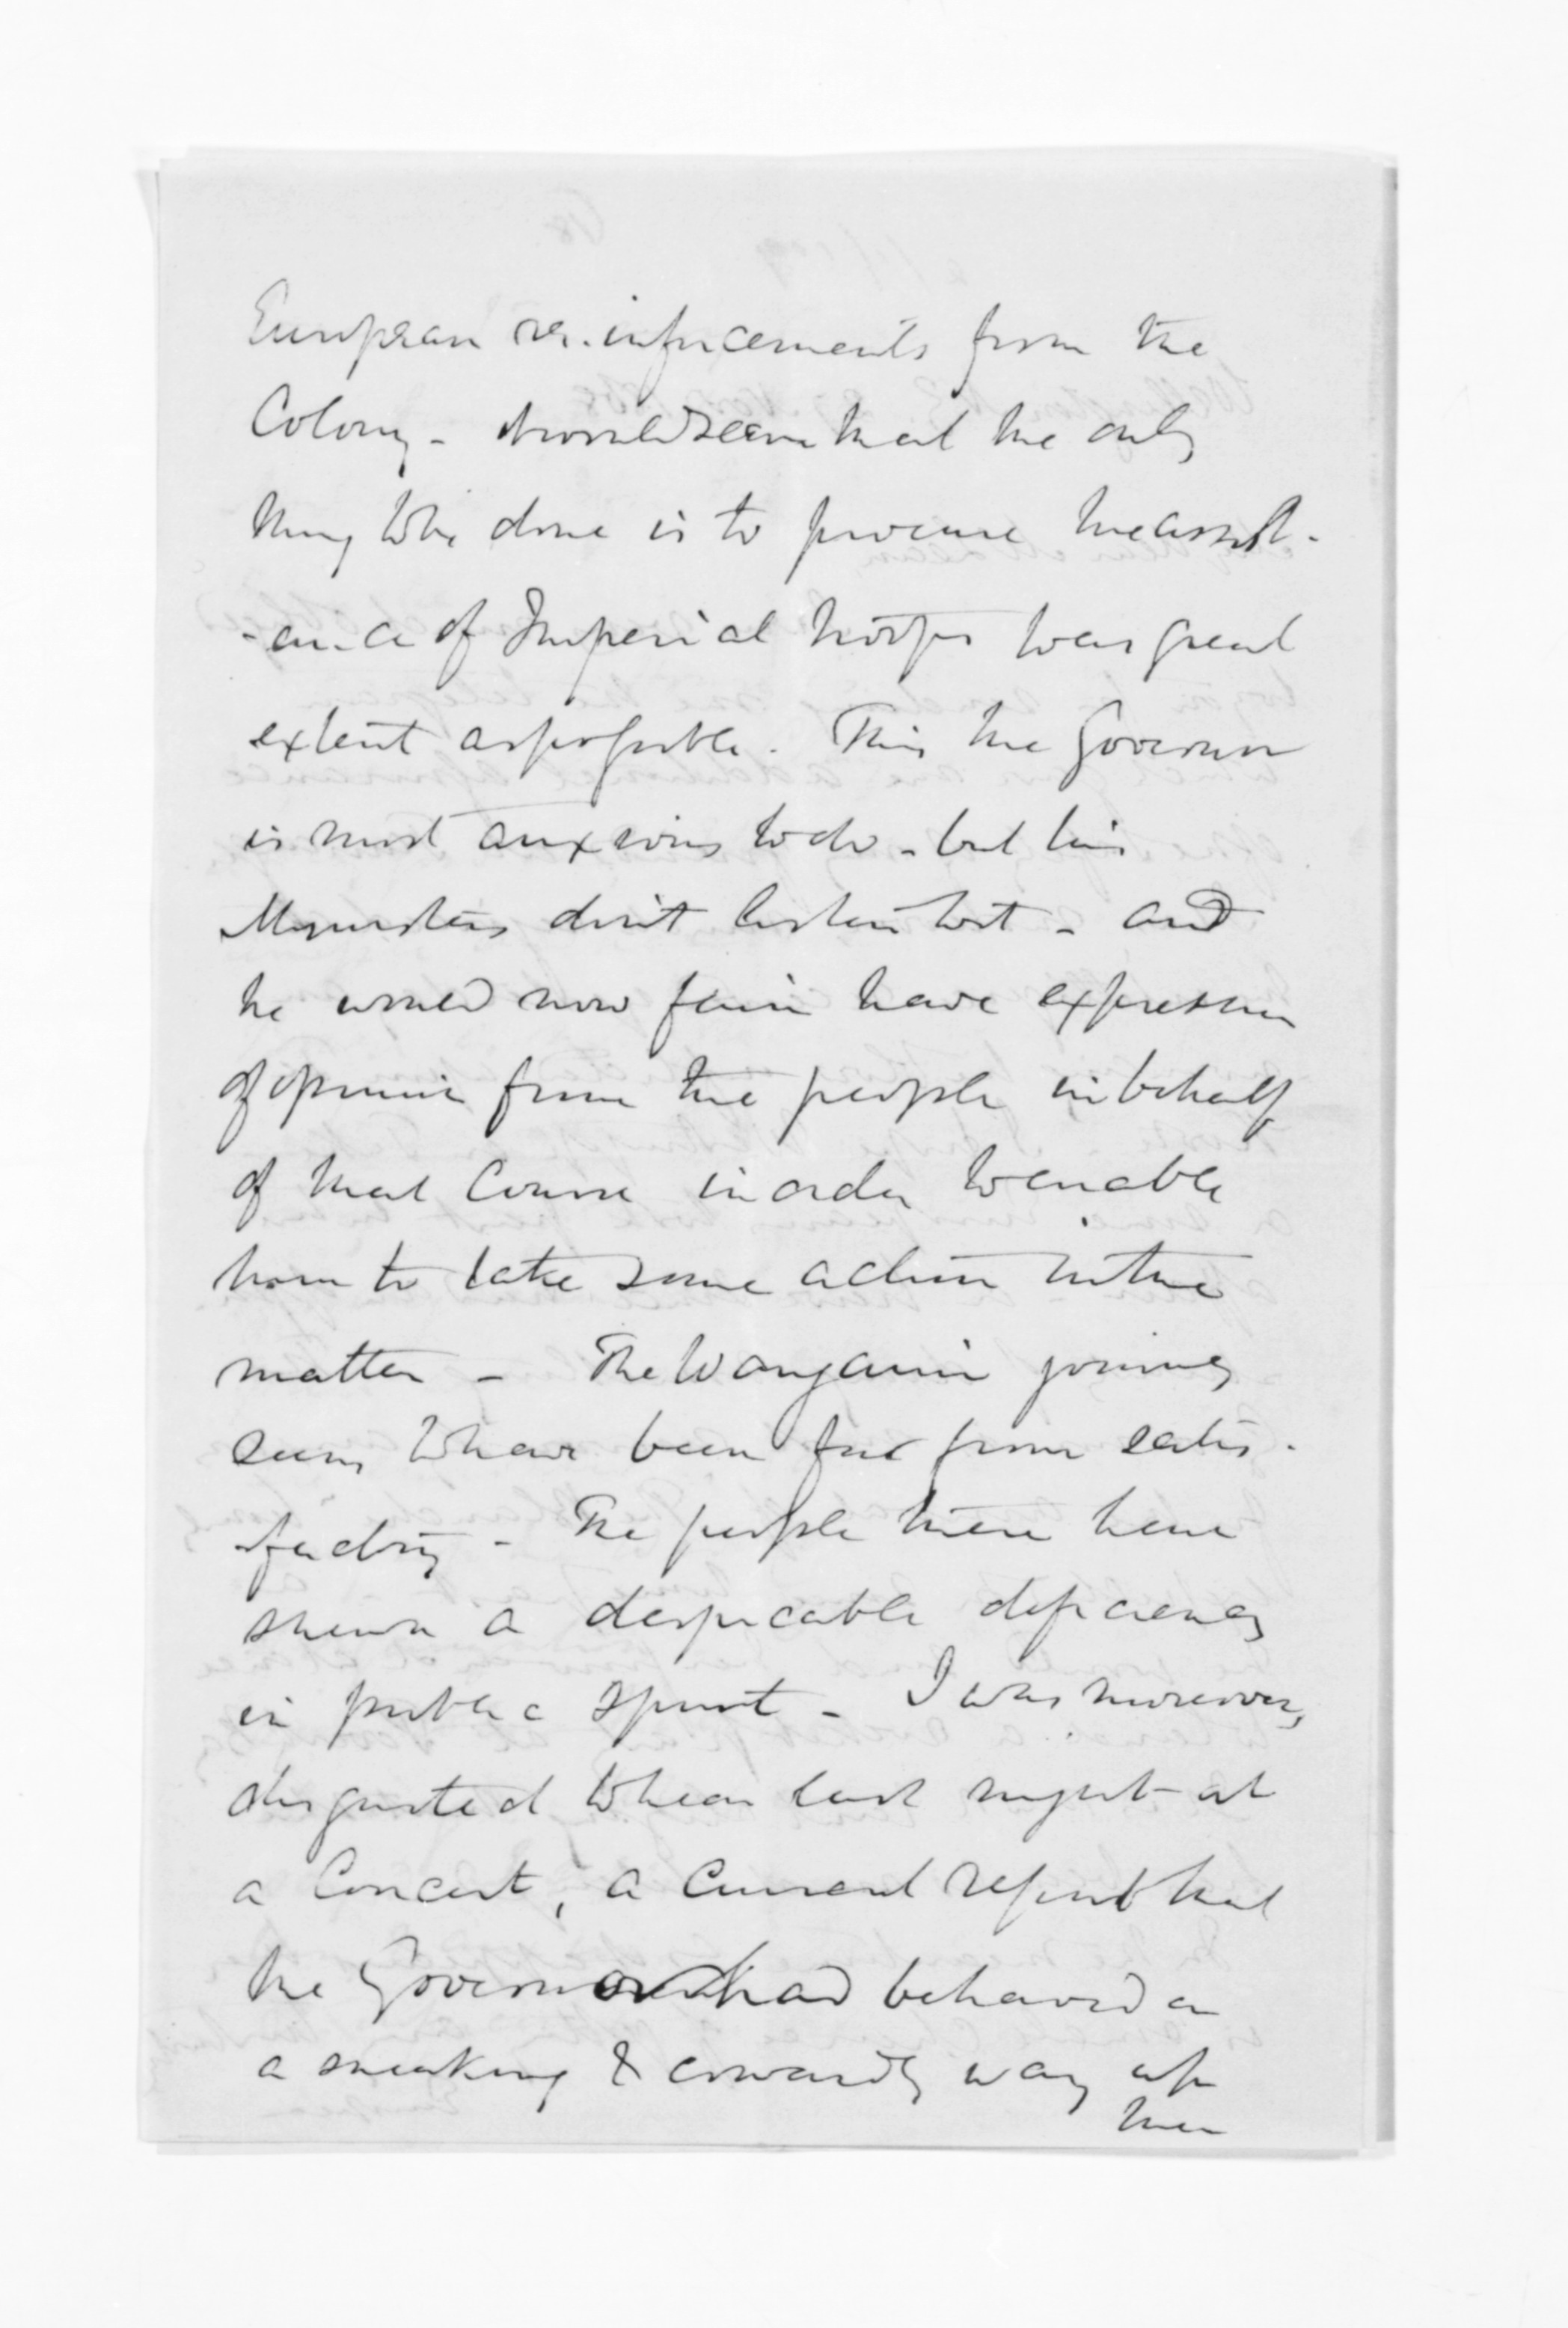 European re-inforcements from the
Colony - it would seem that the only
thing to be done is to procure the assist-
-ance of Imperial troops to as great
extent as possible. This the Governor
is most anxious to do - but his
Ministers don't listen to it - and
he would now fain have expression
of opinion from the people in behalf
of that course in order to enable
him to take some action in the
matter - The Wanganui journey
seems to have been far from satis-
-factory - The people there have
shewn a despicable deficiency
in public spirit - I was moreover,
disgusted to hear last night at
a Concert, a current report that
the Governor had behaved in
a sneaking & cowardly way up
there